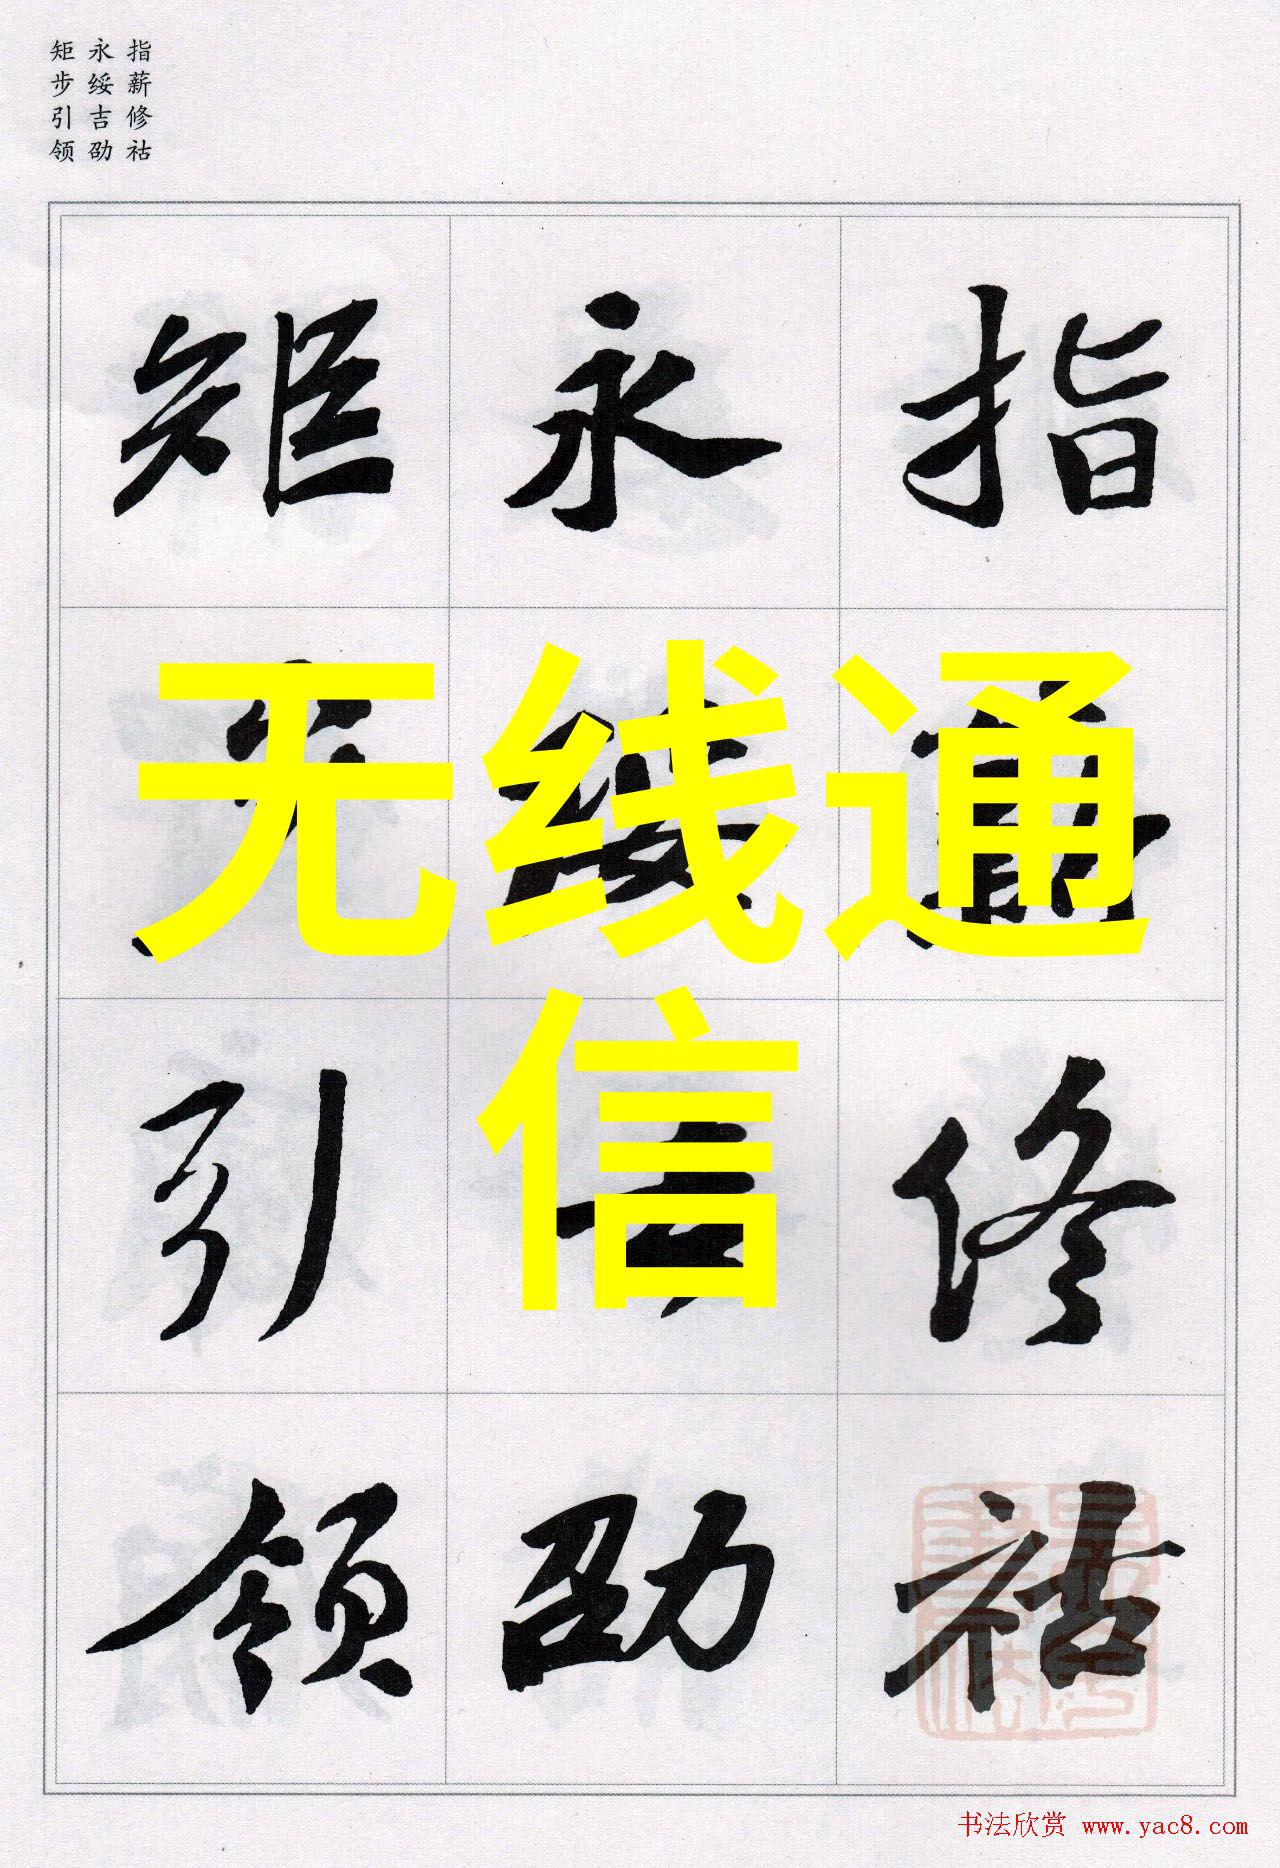 指薪修祜
永绥吉劭
矩步引领
指薪修祜
永绥吉劭
矩步引领
无线通
信
书法欣赏 www.yac8.com